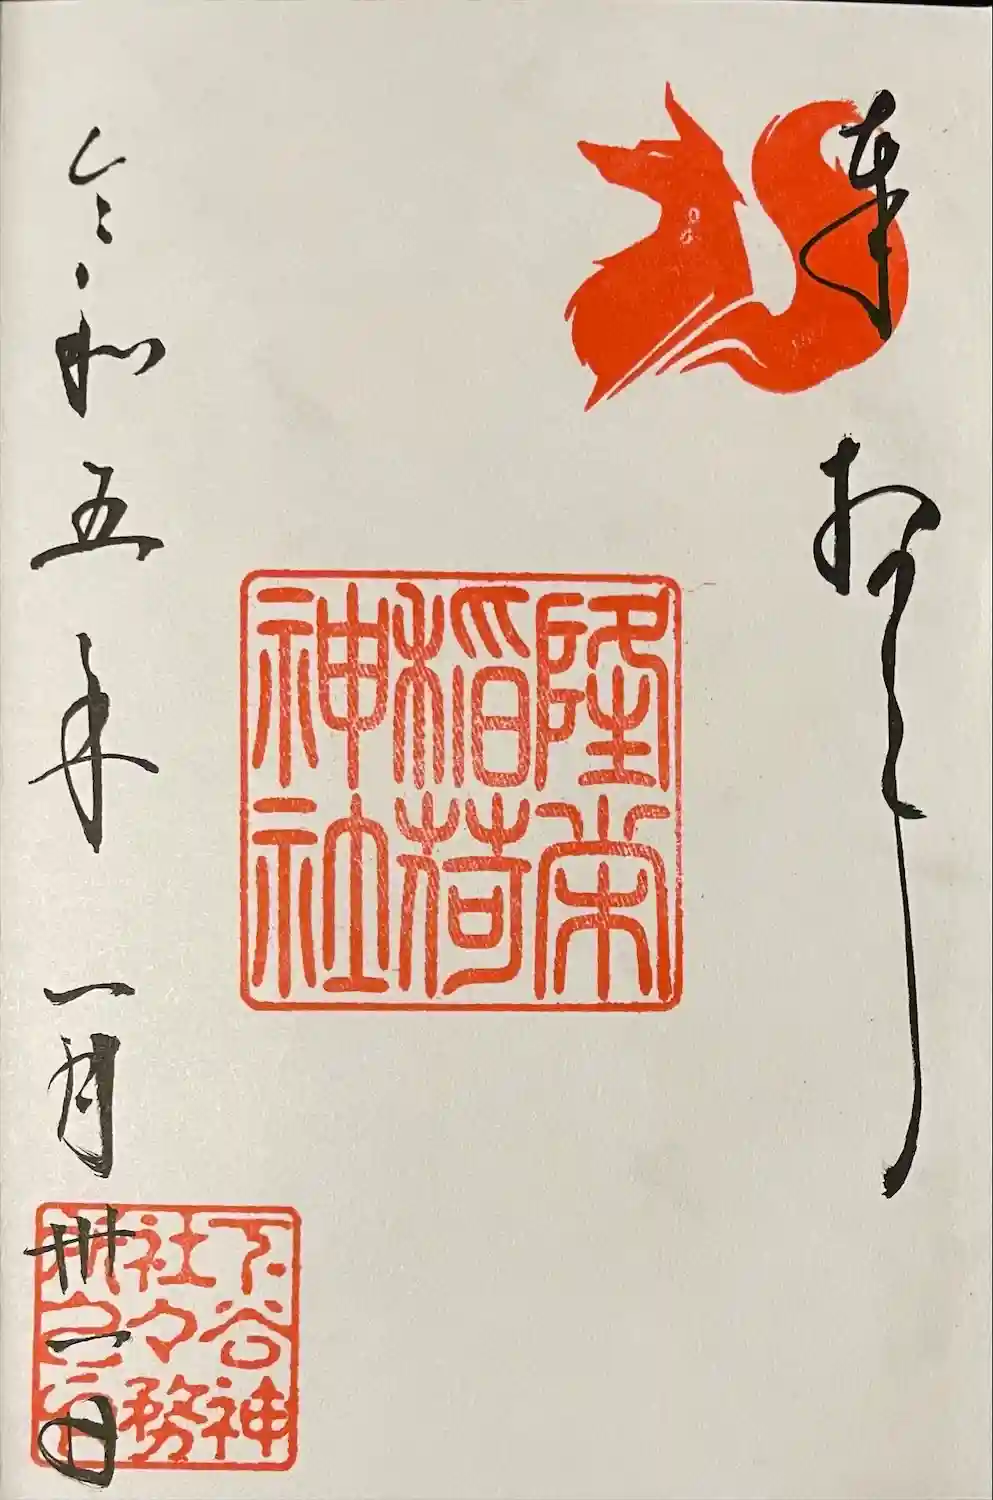 奉拝
隆栄
稲荷
神社
令和五年一月卅一日
下谷神
社々務
所之印